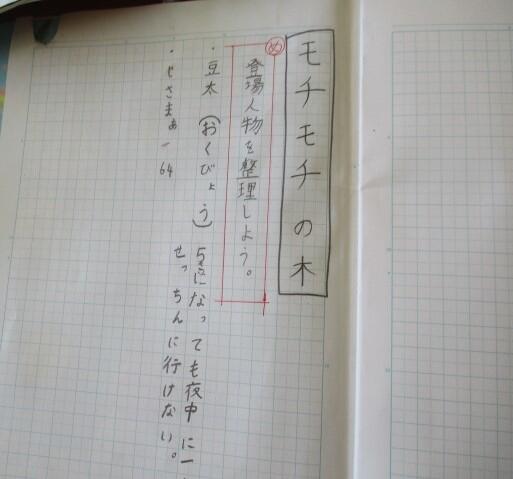 モチモチの木
め
登場人物を整理しよう。
・豆太(おくびょう) 5さいになっても夜中に一
せっちんに行けない。
・じさまぁー64